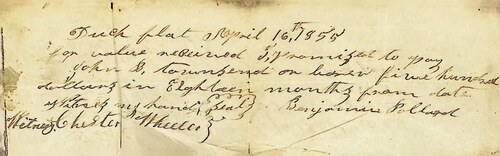 Duck flat April 16th, 1855
for value received I, promised to pay
John B, townsend or barer five hundred
dollars in Eighteen months from date
witness my hand & seal } Benjamin Pollard
Witness Chester Wheeler }